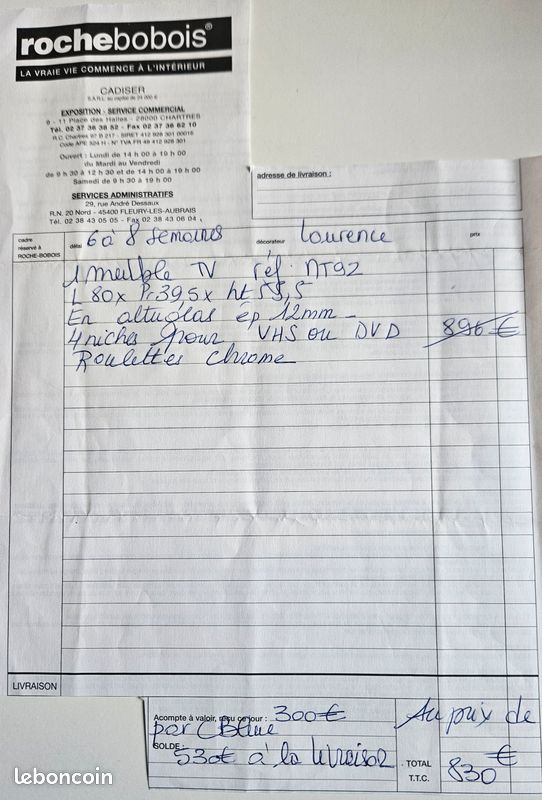 rochebobois®
LA VRAIE VIE COMMENCE À L'INTÉRIEUR
CADISER
S.A.R.L. au capital de 24 000 €
EXPOSITION - SERVICE COMMERCIAL
9 - 11 Place des Halles - 28000 CHARTRES
Tél. 02 37 36 38 52 - Fax 02 37 36 62 10
R.C. Chartres 97 B 217 - SIRET 412 928 301 00016
Code APE 524 H - N° TVA FR 49 412 928 301
Ouvert : Lundi de 14 h 00 à 19 h 00
du Mardi au Vendredi
de 9 h 30 à 12 h 30 et de 14 h 00 à 19 h 00
Samedi de 9 h 30 à 19 h 00
SERVICES ADMINISTRATIFS
29, rue André Dessaux
R.N. 20 Nord - 45400 FLEURY-LES-AUBRAIS
Tél. 02 38 43 05 05 - Fax 02 38 43 06 04
adresse de livraison :
cadre réservé à ROCHE-BOBOIS
délai 6 à 8 semaines
décorateur Laurence
prix
1 meuble TV réf. NT92
L 80 x Pr 39,5 x ht 55,5
En altuglas ép 12mm -
4 niches pour VHS ou DVD 896 €
Roulettes chrome
LIVRAISON
Acompte à valoir, reçu ce jour : 300€
par CBleue
SOLDE : 530€ à la livraison
Au prix de
TOTAL T.T.C. 830 €
leboncoin